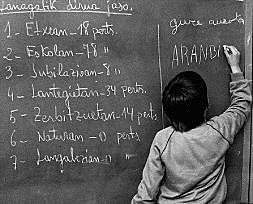 Lanagatik dirua jaso.
1- Etxean-18 perts.
2- Eskolan-78 "
3- Jubilazioan-8 "
4- Lantegietan-34 perts.
5- Zerbitzuetan-14 perts.
6- Naturan-0 perts
7- Langabezian-0 "
gure auzoa
ARANBI